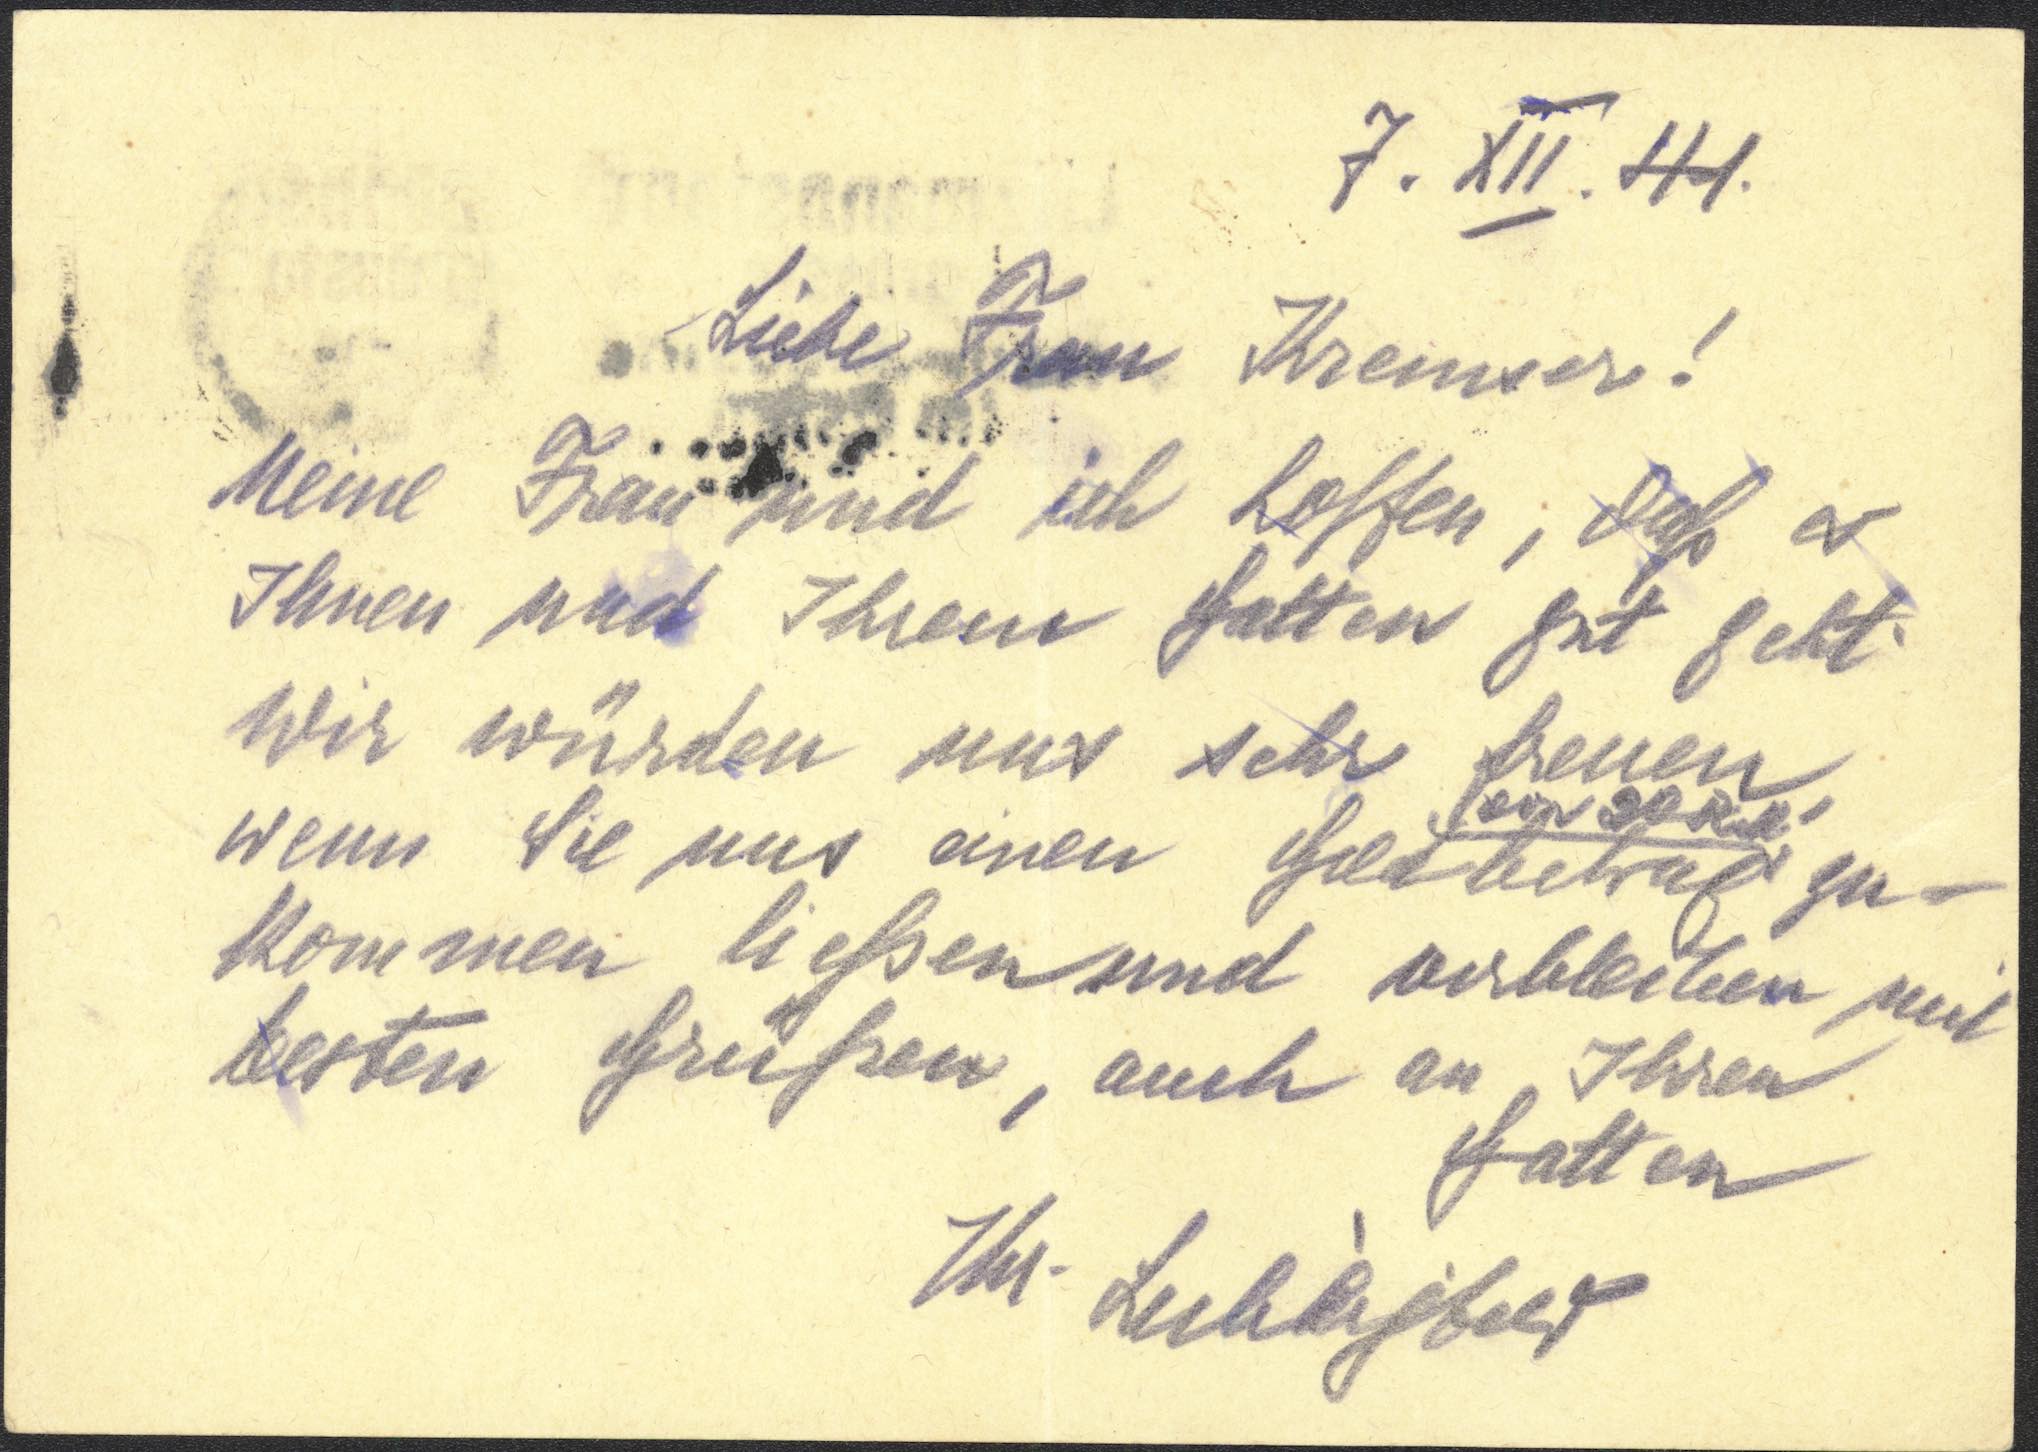 7. XII. 41.
Liebe Frau Kremser!
Meine Frau und ich hoffen, daß es
Ihnen und Ihrem Gatten gut geht.
Wir würden uns sehr freuen
von 20 R.M.
wenn Sie uns einen Geldbetrag zu-
kommen ließen und verbleiben mit
besten Grüßen, auch an Ihren
Gatten
Ihr